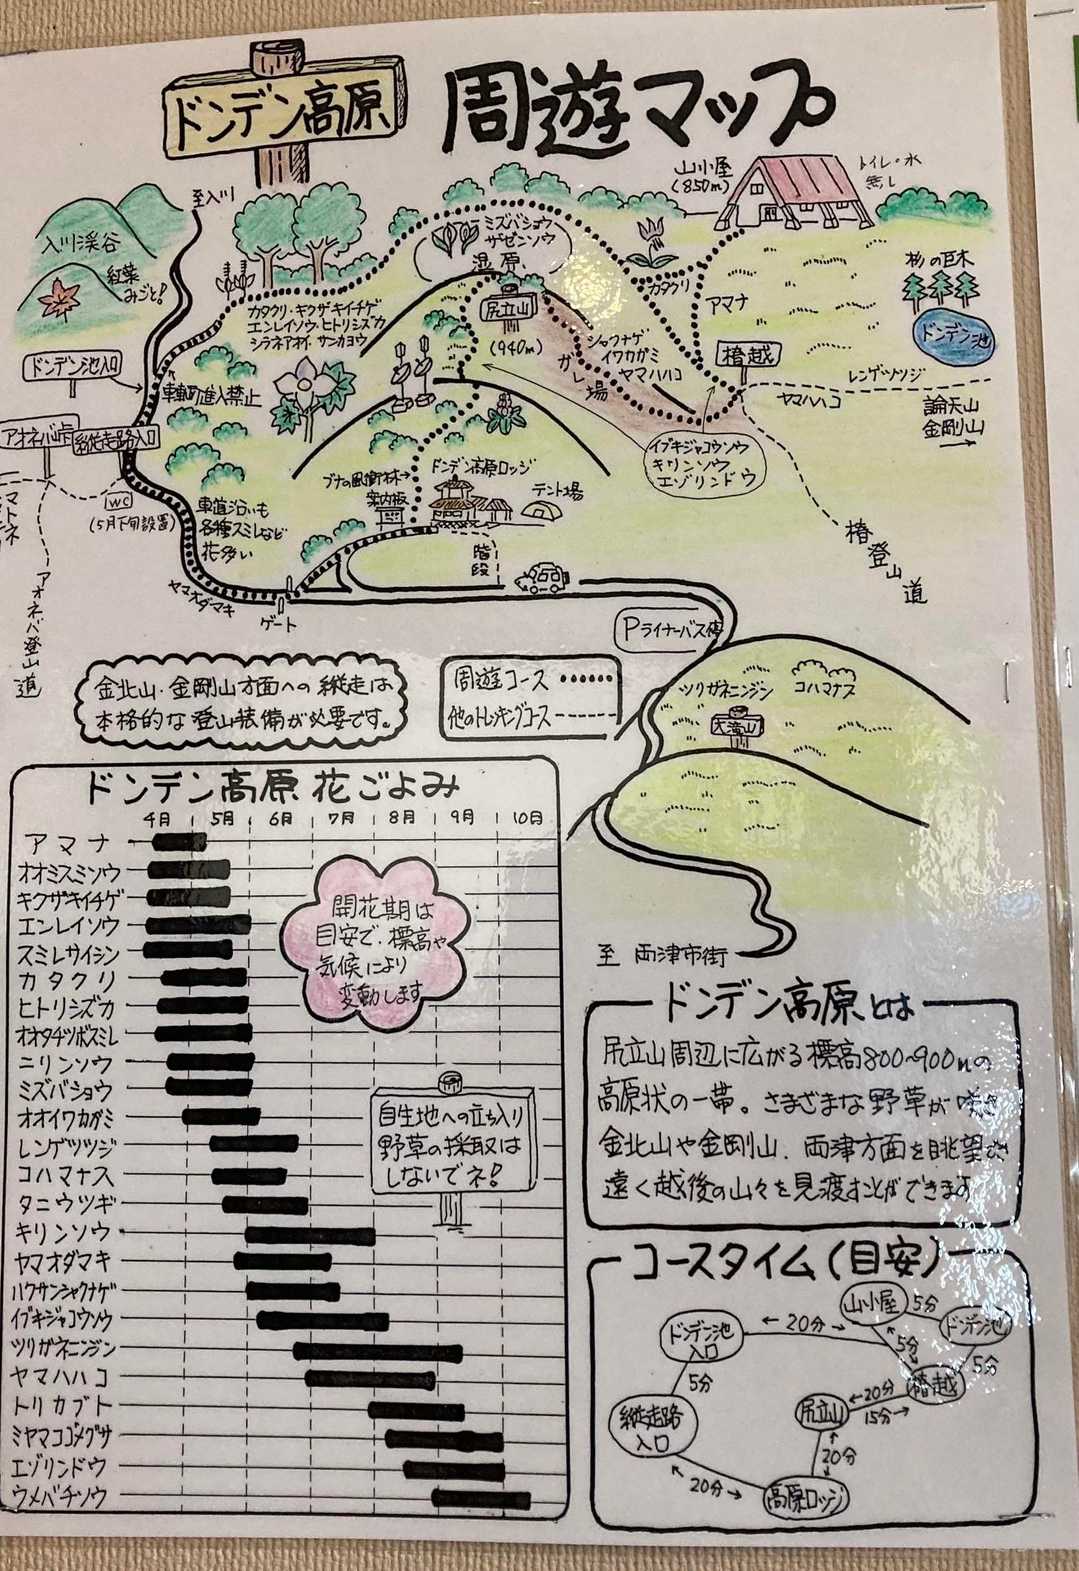 ドンデン高原
周遊マップ
至入川
入川渓谷
紅葉
みごと!
山小屋
(850m)
トイレ・水
無し
ミズバショウ
ザゼンソウ
湿原
カタクリ・キクザキイチゲ
エンレイソウ・ヒトリシズカ
シラネアオイ・サンカヨウ
カタクリ
アマナ
杉の巨木
ドンデン池
尻立山
(940m)
シャクナゲ
イワカガミ
ヤマハハコ
ガレ場
椿越
レンゲツツジ
ヤマハハコ
論天山
金剛山
ドンデン池入口
車輌進入禁止
アオネバ峠
縦走路入口
イブキジャコウソウ
キリンソウ
エゾリンドウ
ブナの風衝林
案内板
ドンデン高原ロッジ
テント場
WC
(5月下旬設置)
車道沿いも
各種スミレなど
花多い
階段
椿登山道
ヤマオダマキ
ゲート
アオネバ登山道
Pライナーバス停
金北山・金剛山方面への縦走は
本格的な登山装備が必要です。
周遊コース
他のトレッキングコース
ツリガネニンジン
コハマナス
天滝山
至 両津市街
ドンデン高原 花ごよみ
4月 5月 6月 7月 8月 9月 10月
アマナ
オオミスミソウ
キクザキイチゲ
エンレイソウ
スミレサイシン
カタクリ
ヒトリシズカ
オオタチツボスミレ
ニリンソウ
ミズバショウ
オオイワカガミ
レンゲツツジ
コハマナス
タニウツギ
キリンソウ
ヤマオダマキ
ハクサンシャクナゲ
イブキジャコウソウ
ツリガネニンジン
ヤマハハコ
トリカブト
ミヤマコゴメグサ
エゾリンドウ
ウメバチソウ
開花期は
目安で、標高や
気候により
変動します
自生地への立ち入り
野草の採取は
しないでネ!
ドンデン高原とは
尻立山周辺に広がる標高800~900mの
高原状の一帯。さまざまな野草が咲き
金北山や金剛山、両津方面を眺望でき
遠く越後の山々を見渡すことができます
コースタイム(目安)
山小屋
5分
ドンデン池
ドンデン池
入口
20分
5分
5分
椿越
5分
縦走路
入口
尻立山
20分
15分
20分
20分
高原ロッジ